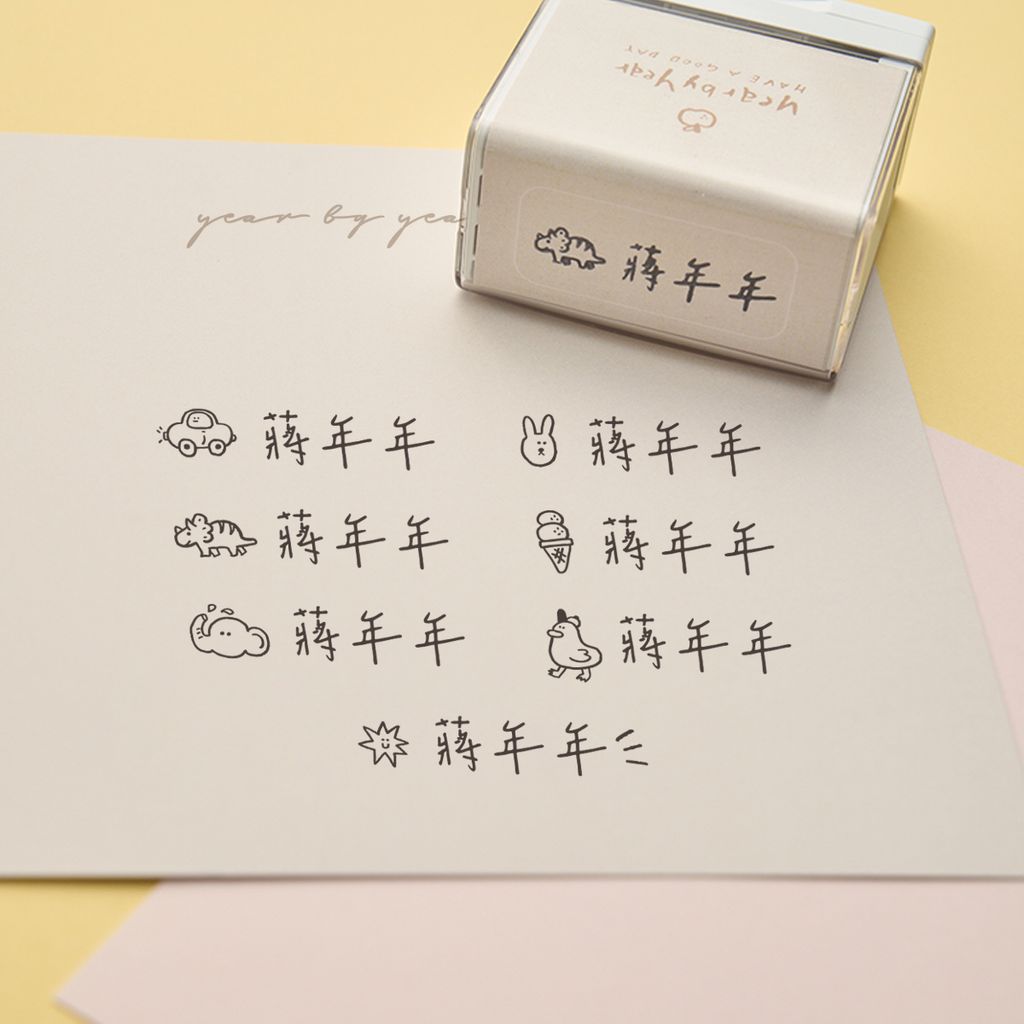 HAVE A GOOD DAY
year by year
year by yea
蔣年年
蔣年年 蔣年年
蔣年年 蔣年年
蔣年年 蔣年年
蔣年年